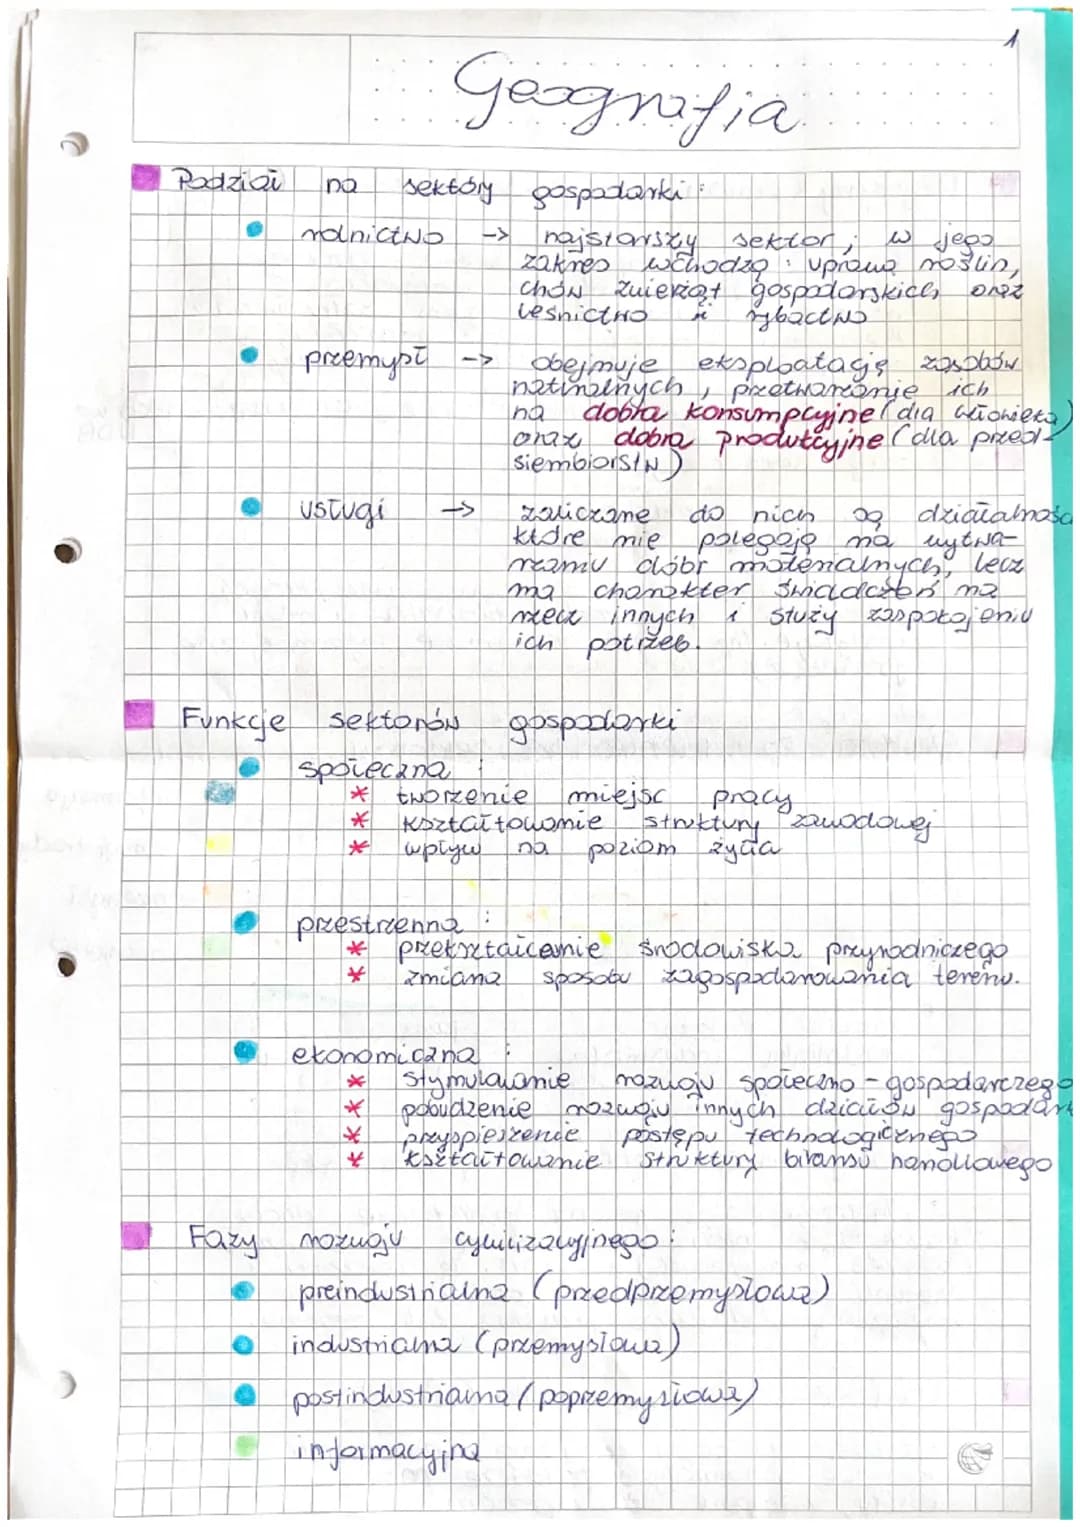 1
Geografia
Podział na sektory gospodarki:
rolnictwo -> najstarszy sektor, w jego
zakres wchodzą: uprawa roślin,
chów zwierząt gospodarskich oraz
leśnictwo i rybactwo
przemysł -> obejmuje eksploatację zasobów
naturalnych, przetwarzanie ich
na dobra konsumpcyjne (dla człowieka)
oraz dobra produkcyjne (dla przed-
siembiorstw)
usługi -> zaliczane do nich są działalności
które nie polegają na wytwa-
rzaniu dóbr materialnych, lecz
ma charakter świadczeń na
rzecz innych i służy zaspokojeniu
ich potrzeb.
Funkcje sektorów gospodarki
społeczna:
* tworzenie miejsc pracy
* kształtowanie struktury zawodowej
* wpływ na poziom życia
przestrzenna:
* przekształcanie środowiska przyrodniczego
* zmiana sposobu zagospodarowania terenu.
ekonomiczna:
* stymulowanie rozwoju społeczno-gospodarczego
* pobudzenie rozwoju innych działów gospodark
* przyspieszenie postępu technologicznego
* kształtowanie struktury bilansu handlowego
Fazy rozwoju cywilizacyjnego:
preindustrialna (przedprzemysłowa)
industrialna (przemysłowa)
postindustrialna (poprzemysłowa)
informacyjna